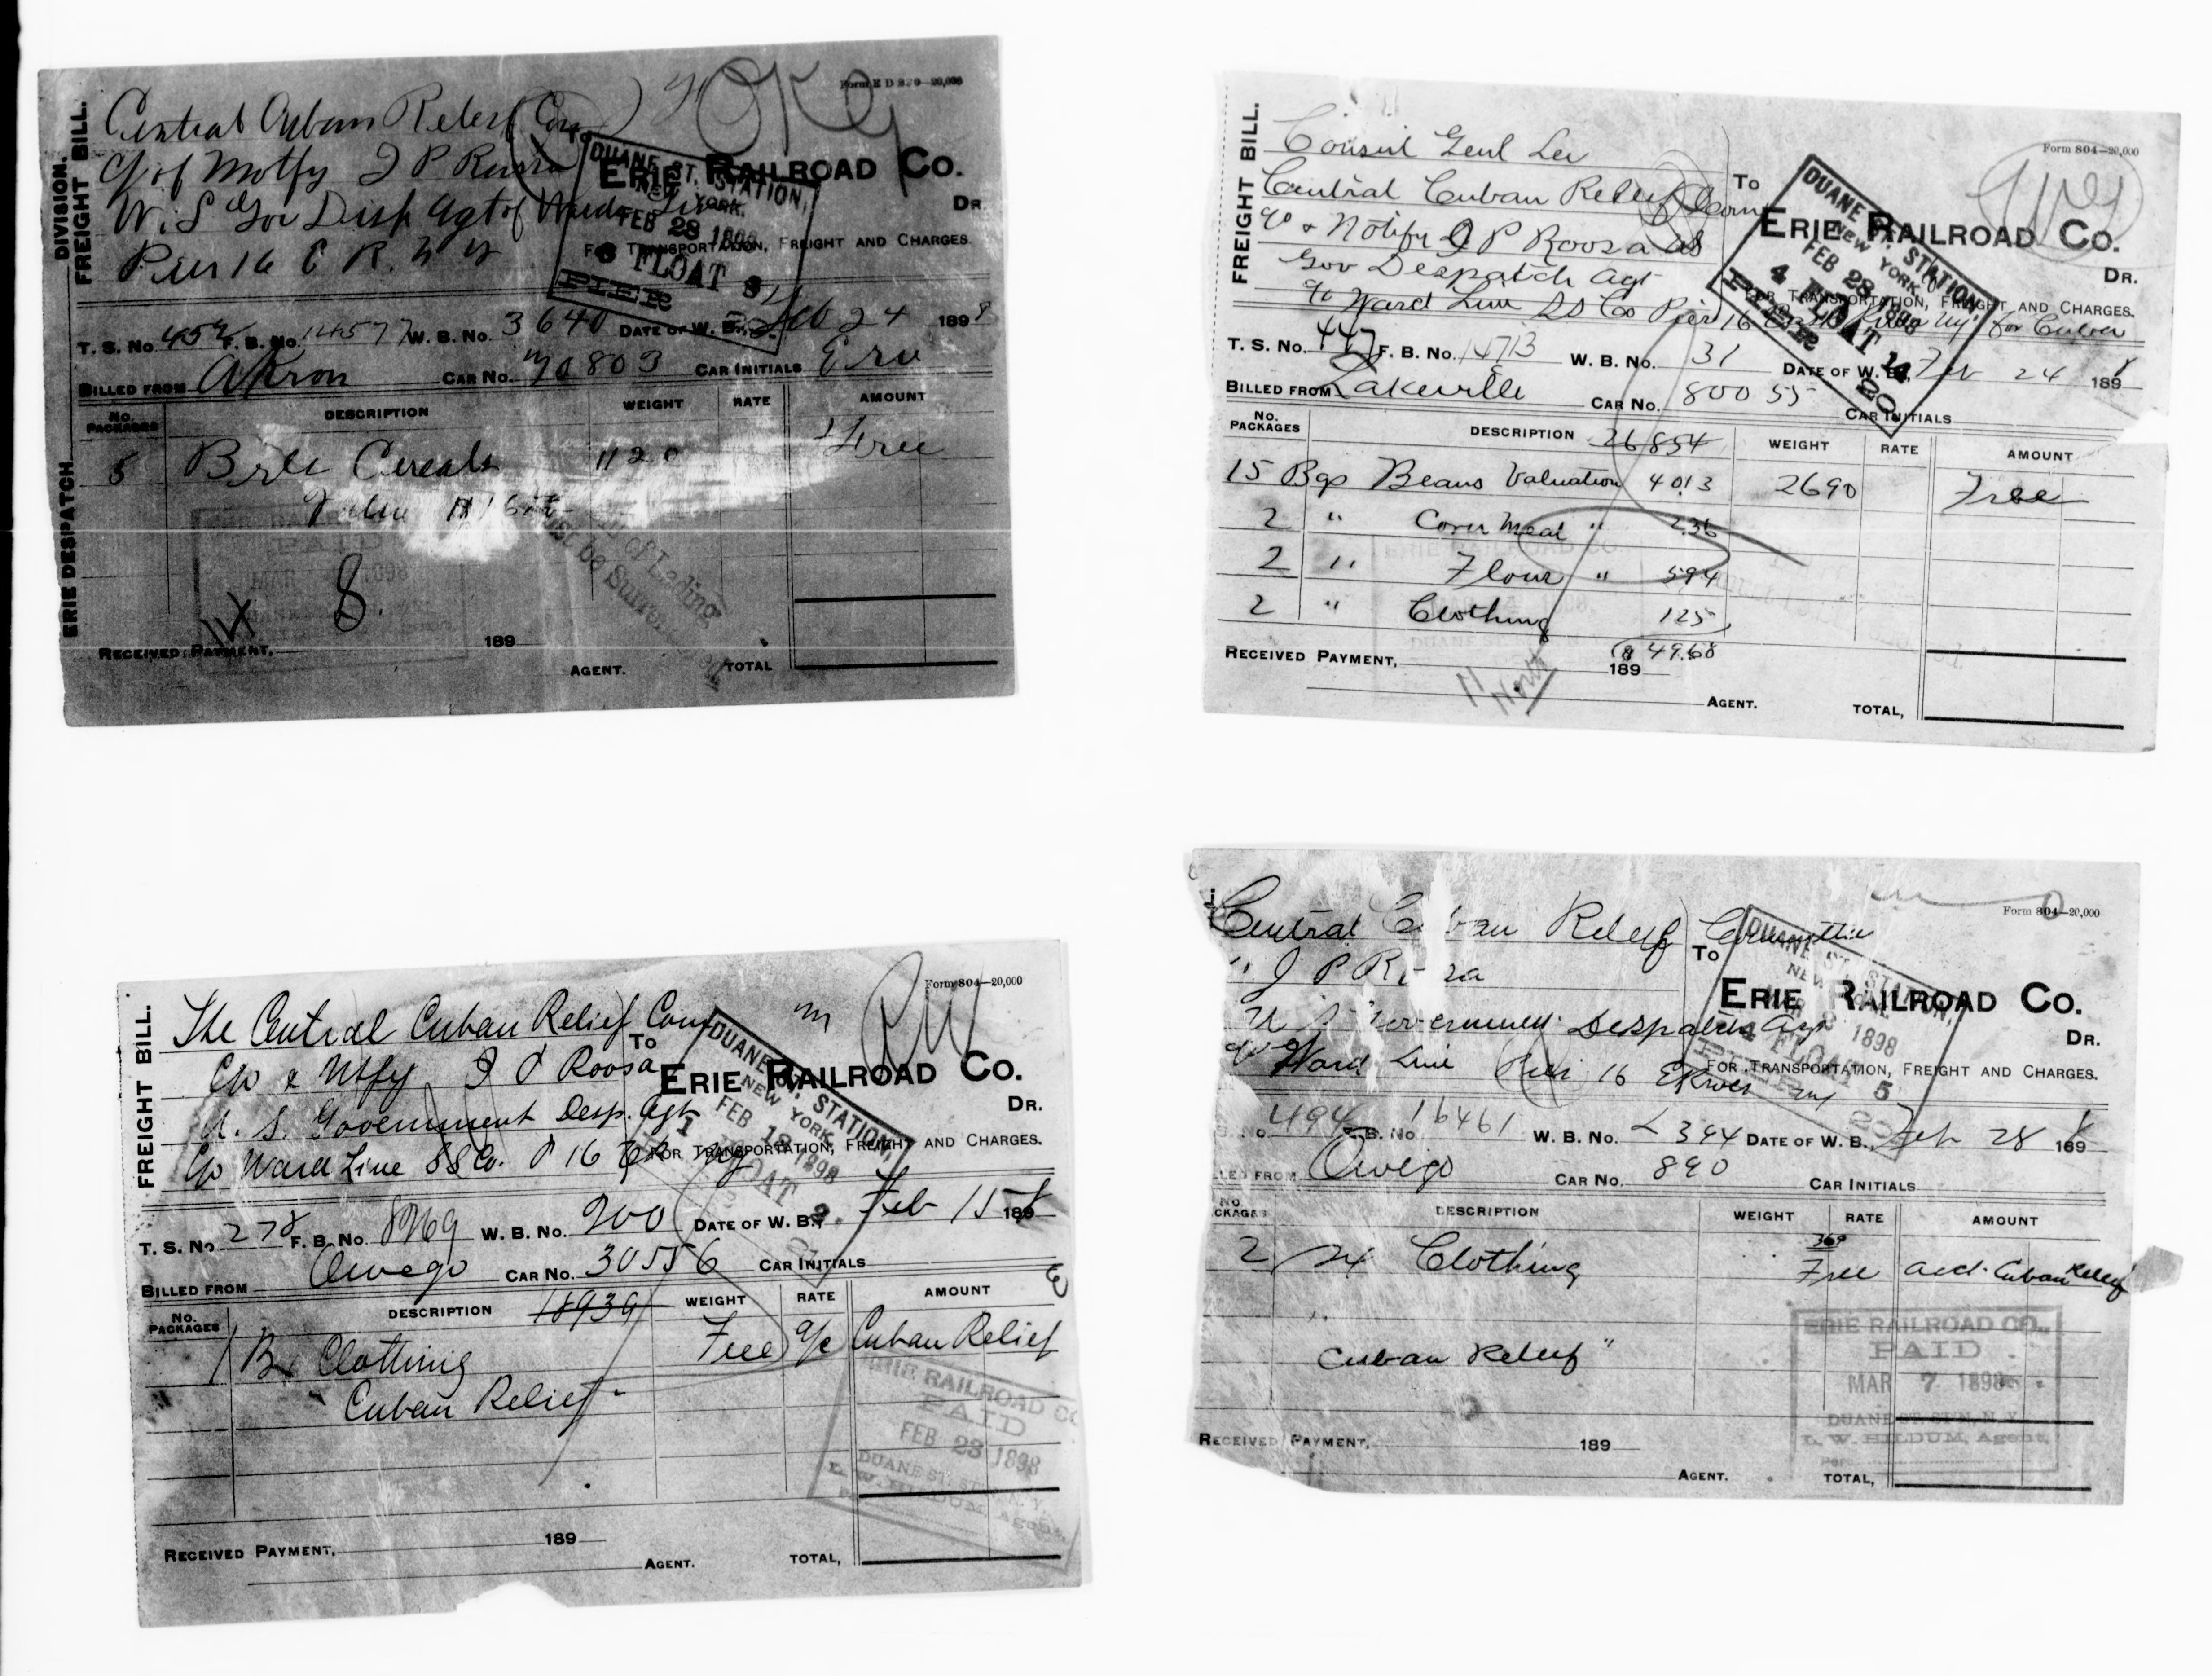 DIVISION.
FREIGHT BILL.
ERIE DESPATCH
Form E D 829—20,000
Central Cuban Relief Com
To
ERIE RAILROAD CO.
DR.
FOR TRANSPORTATION, FREIGHT AND CHARGES.
Pier 16 E R. N Y
DUANE ST. STATION,
NEW YORK.
FEB 28 1898
FLOAT
PIER
T. S. No. 452 F. B. No. 14577 W. B. No. 3640 DATE OF W. B., Feb 24 1898
BILLED FROM Akron CAR No. 70803 CAR INITIALS Erie
No. PACKAGES DESCRIPTION WEIGHT RATE AMOUNT
5 Brls Cereals 1120 Free
Value
Bill of Lading
Must be Surrendered
8.
RECEIVED PAYMENT, 189
AGENT. TOTAL
FREIGHT BILL.
Form 804—20,000
Consul Genl Lee
To
Central Cuban Relief Com
c/o & Notify J P Roosa US
Gov Despatch Agt
c/o Ward Line SS Co Pier 16 East River NY for Cuba
ERIE RAILROAD CO.
DR.
FOR TRANSPORTATION, FREIGHT AND CHARGES.
DUANE ST. STATION,
NEW YORK.
FEB 28 1898
4 FLOAT 14
PIER 20
T. S. No. 447 F. B. No. 14713 W. B. No. 31 DATE OF W. B., Feb 24 1898
BILLED FROM Lakeville CAR No. 80055 CAR INITIALS
No. PACKAGES DESCRIPTION 26854 WEIGHT RATE AMOUNT
15 Bgs Beans Valuation 4013 2690 Free
2 " Corn Meal " 236
2 " Flour " 594
2 " Clothing 125
$ 49.68
RECEIVED PAYMENT, 189
AGENT. TOTAL,
FREIGHT BILL.
Form 804—20,000
The Central Cuban Relief Com
To
C/o & Ntfy J P Roosa
U. S. Government Desp. Agt
C/o Ward Line SS Co. P 16 ER NY
ERIE RAILROAD CO.
DR.
FOR TRANSPORTATION, FREIGHT AND CHARGES.
DUANE ST. STATION,
NEW YORK.
FEB 18 1898
1 FLOAT 2
T. S. No. 278 F. B. No. 8969 W. B. No. 200 DATE OF W. B., Feb 15 1898
BILLED FROM Owego CAR No. 30556 CAR INITIALS
No. PACKAGES DESCRIPTION 18939 WEIGHT RATE AMOUNT
1 Bx Clothing Free a/c Cuban Relief
"Cuban Relief"
ERIE RAILROAD CO.
PAID
FEB 23 1898
DUANE ST. STN. N. Y.
L. W. HILDUM, Agent.
RECEIVED PAYMENT, 189
AGENT. TOTAL,
Form 804—20,000
Central Cuban Relief Committee
To
" J P Roosa
U S Government Despatch Agt
c/o Ward Line Pier 16 E River NY
ERIE RAILROAD CO.
DR.
FOR TRANSPORTATION, FREIGHT AND CHARGES.
DUANE ST. STATION,
NEW YORK.
MAR 2 1898
4 FLOAT 5
PIER 20
S. No. 494 F. B. No. 16461 W. B. No. 2344 DATE OF W. B., Feb 28 1898
BILLED FROM Owego CAR No. 890 CAR INITIALS
No. PACKAGES DESCRIPTION WEIGHT RATE AMOUNT
369
2 Bx Clothing Free acct. Cuban Relief
" Cuban Relief "
ERIE RAILROAD CO.,
PAID
MAR 7 1898
DUANE ST. STN. N. Y.
L. W. HILDUM, Agent.
RECEIVED PAYMENT, 189
AGENT. TOTAL,